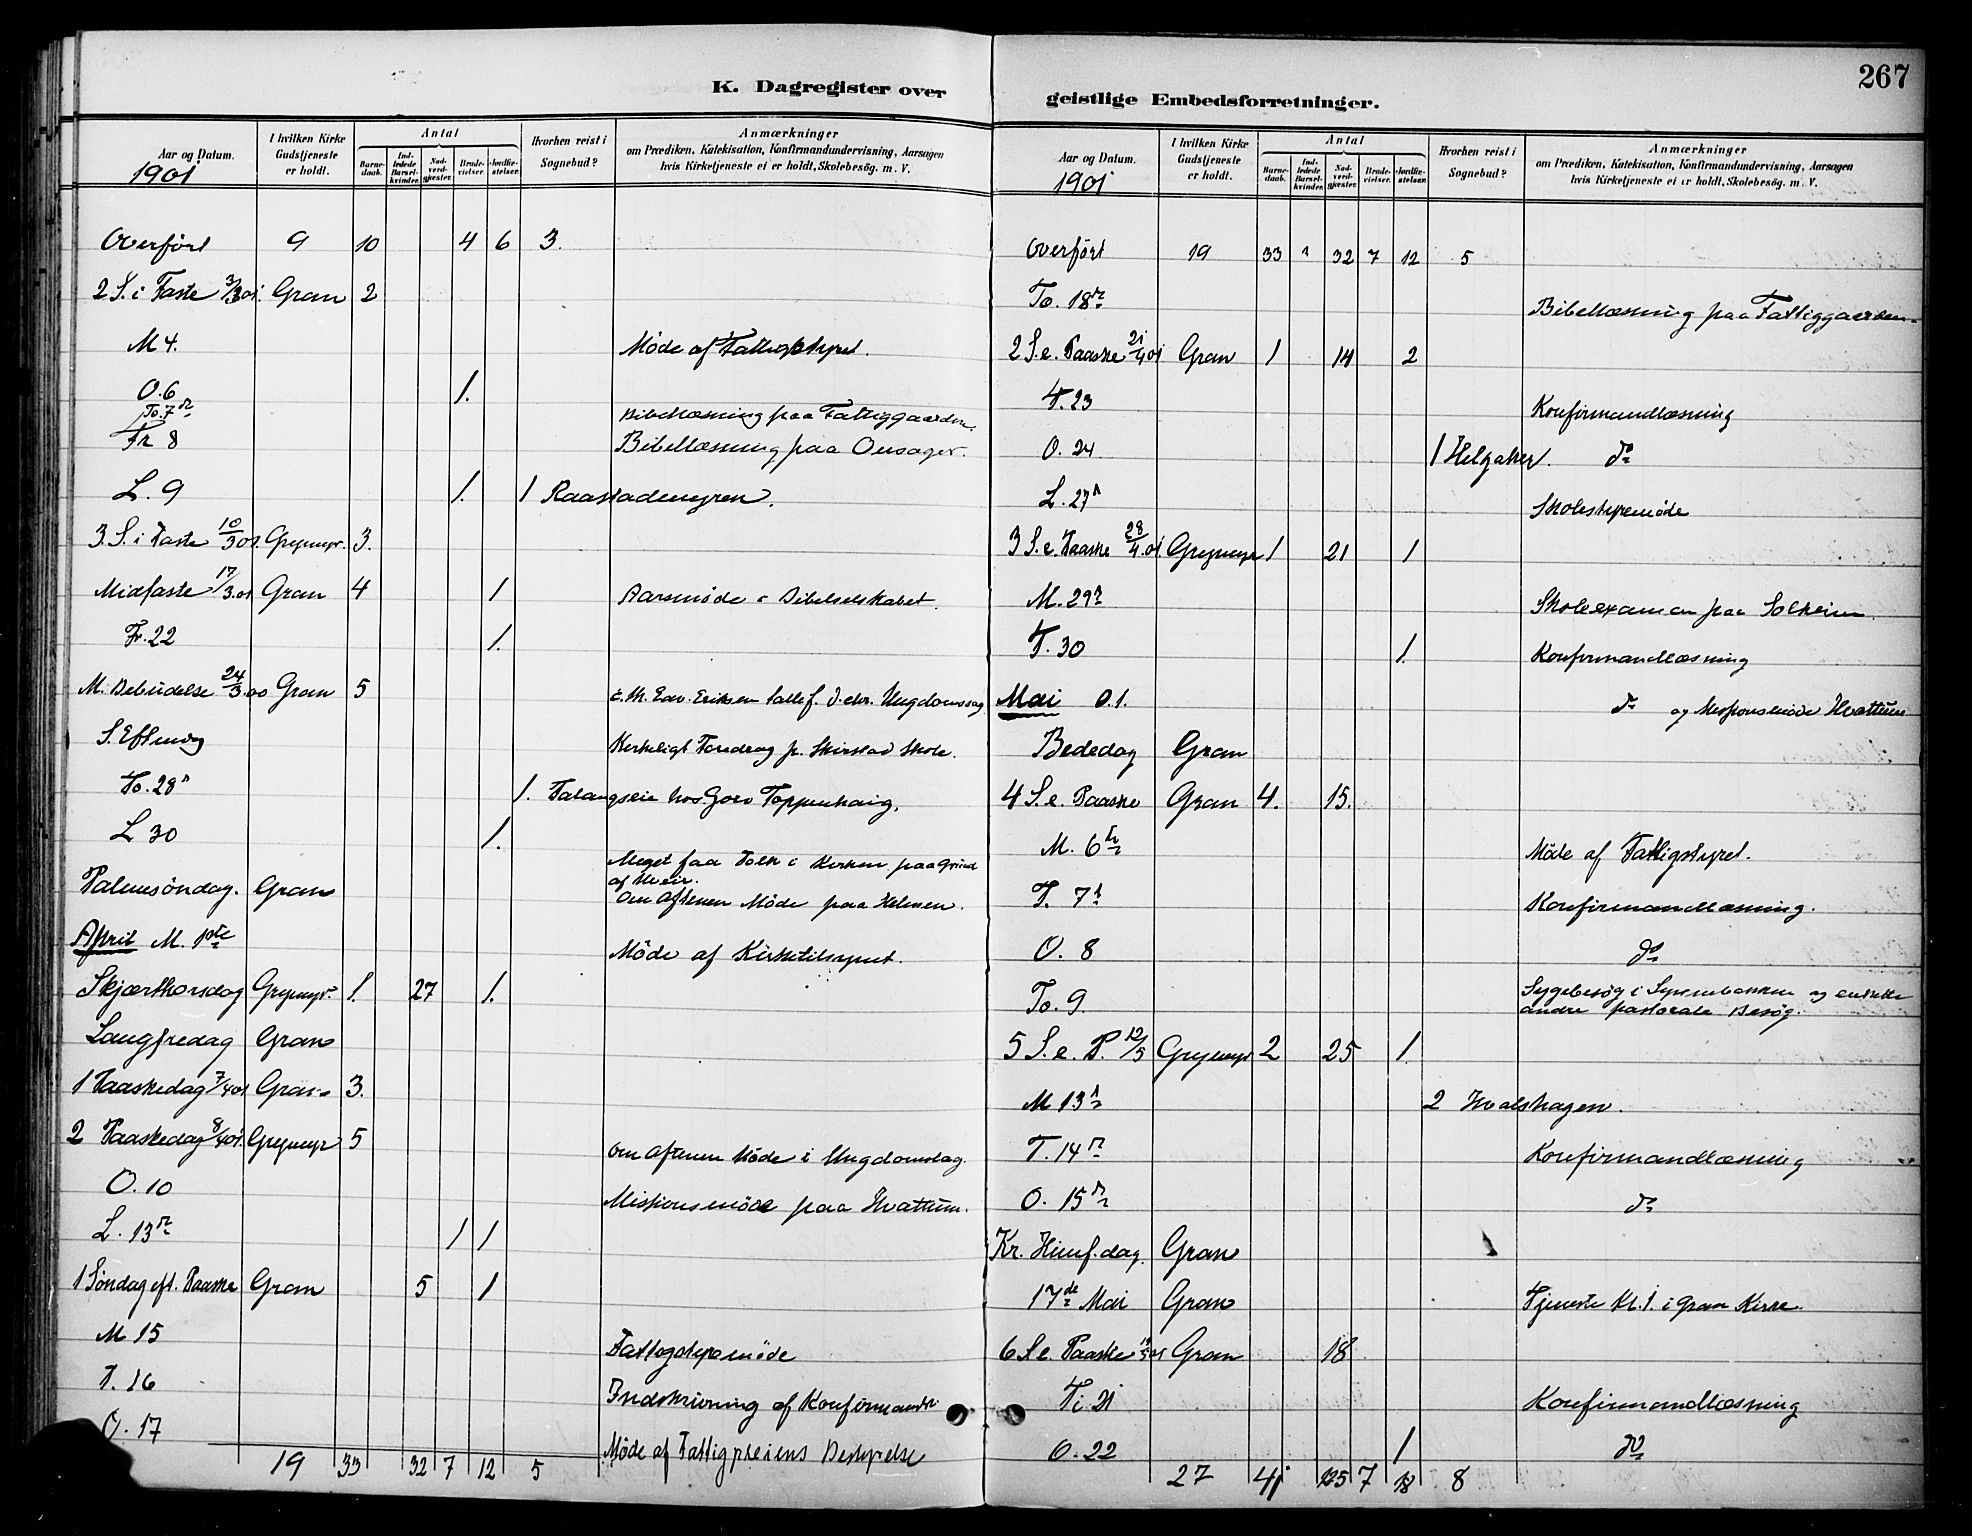 K. Dagregister over
Aar og Datum.
1901
I hvilken Kirke Gudstjeneste er holdt.
Antal
Barne-daab.
Ind-ledede Barsel-kvinder.
Nad-verd-gjæster.
Brude-vielser.
Jordfæ-stelser.
Hvorhen reist i Sognebud?
Anmærkninger
om Prædiken, Katekisation, Konfirmandundervisning, Aarsagen
hvis Kirketjeneste ei er holdt, Skolebesög. m. V.
Overført 9 10 4 6 3.
2 S. i Faste 3/3 01. Gran 2
M 4. Møde af Fattigstyret.
O. 6 1.
To. 7de Bibellæsning paa Fattiggaarden.
Fr 8 Bibellæsning paa
L. 9 1. 1
3. S. i Faste 10/3 01. Grymyr. 3.
Midfaste 17/3. 01 Gran 4 1 Aarsmøde i Bibelselskabet.
Fr. 22 1.
M. Bebudelse 24/3. 00 Gran 5 Edv. Eriksen talte f. d. chr. Ungdomssag
S. Eftmdg Kirkeligt Foredrag p. Skirstad Skole.
To. 28de 1. hos Toppenhaug.
L 30 1.
Meget faa Folk i Kirken paa Grund
af Uveir.
Palmesøndag. Gran Om Aftenen Møde paa
April M. 1ste Møde af Kirketilsynet.
Skjærthorsdag Grymyr. 1. 27 1.
Langfredag Gran
1 Paaskedag 7/4 01 Gran 3.
2 Paaskedag 8/4 01. Grymyr 5 Om Aftenen Møde i Ungdomslag.
O. 10 Missionsmøde paa Hvattum.
L. 13de 1 1
1 Søndag eft. Paaske Gran 5 1
M 15 Fattigstyremøde
T. 16 Indskrivning af Konfirmander
O. 17 Møde af Fattigpleiens Bestyrelse
19 33 32 7 12 5
267
geistlige Embedsforretninger.
Aar og Datum.
1901
I hvilken Kirke Gudstjeneste er holdt.
Antal
Barne-daab.
Ind-ledede Barsel-kvinder.
Nad-verd-gjæster.
Brude-vielser.
Jordfæ-stelser.
Hvorhen reist i Sognebud?
Anmærkninger
om Prædiken, Katekisation, Konfirmandundervisning, Aarsagen
hvis Kirketjeneste ei er holdt, Skolebesög. m. V.
Overført 19 33 " 32 7 12 5
To. 18de Bibellæsning paa Fattiggaarden.
2 S. e. Paaske 21/4 01 Gran 1 14 2
T. 23 Konfirmandlæsning
O. 24 1 Helgaker. do
L. 27de Skolestyremøde
3 S. e. Paaske 28/4. 01 Grymyr 1 21 1
M. 29de Skoleexamen paa Solheim.
T. 30 1. Konfirmandlæsning
Mai O. 1. do og Missionsmøde Hvattum
Bededag Gran
4 S. e. Paaske Gran 4. 15.
M. 6te Møde af Fattigstyret.
T. 7de Konfirmandlæsning.
O. 8 do
To. 9. Sygebesøg i og enkelte
andre pastorale Besøg.
5 S. e. P. 12/5 Grymyr 2 25 1.
M 13de 2 Hvalshagen.
T. 14de Konfirmandlæsning
O. 15de do
Kr. Himf. dag. Gran
17de Mai Gran Tjeneste Kl. 1. i Gran Kirke.
6 S. e. Paaske 19/5 01 Gran 18
Ti 21 Konfirmandlæsning
O. 22 1 do
27 41 125 7 18 8